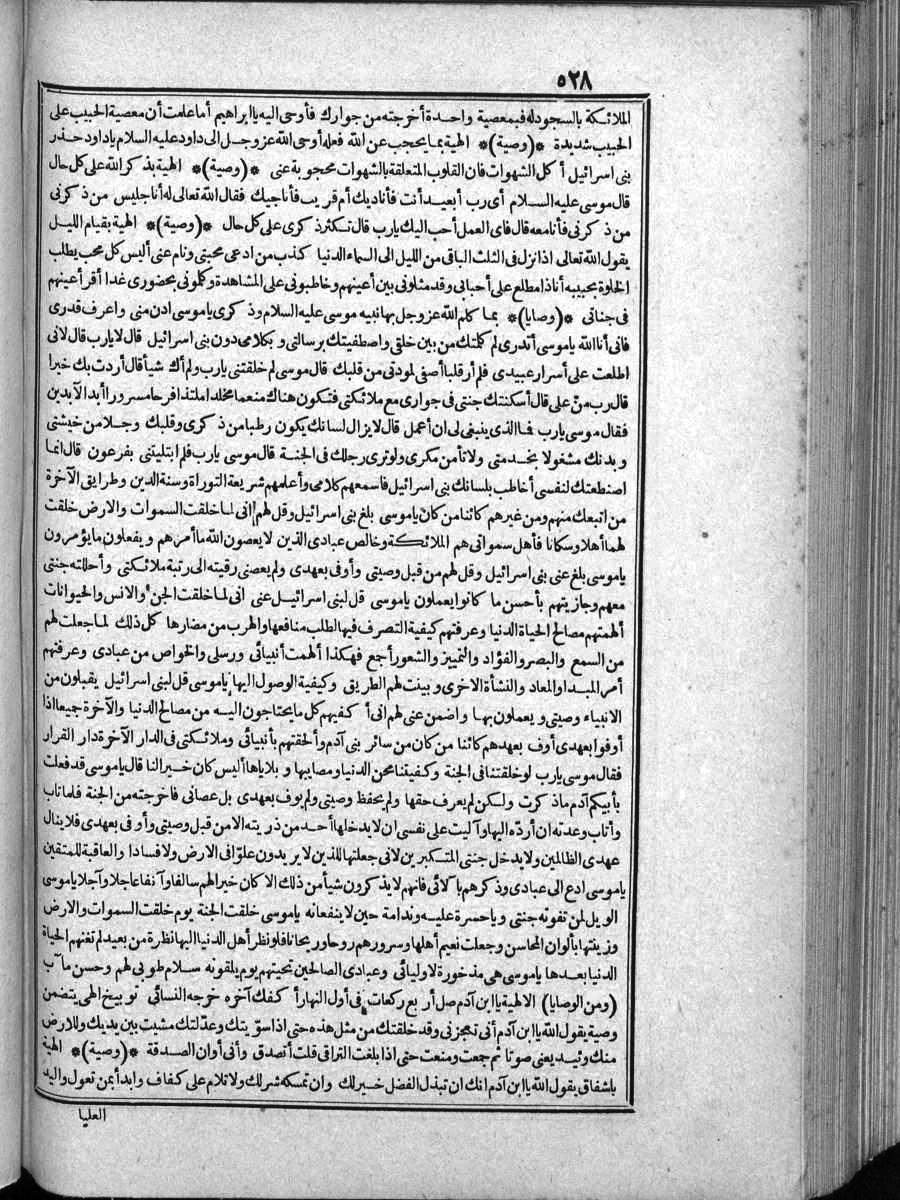 ٥٢٨
الملائكة بالسجود له فبمعصية واحدة أخرجته من جوارك فأوحى اليه يا ابراهيم أما علمت أن معصية الحبيب على
الحبيب شديدة *(وصية)* الهية بما يحجب عن الله فعله أوحى الله عز وجل الى داود عليه السلام يا داود حذر
بنى اسرائيل أكل الشهوات فان القلوب المتعلقة بالشهوات محجوبة عنى *(وصية)* الهية بذكر الله على كل حال
قال موسى عليه السلام أى رب أبعيد أنت فأناديك أم قريب فأناجيك فقال الله تعالى له أنا جليس من ذكرنى
من ذكرنى فأنا معه قال فاى العمل أحب اليك يارب قال تكثر ذكرى على كل حال *(وصية)* الهية بقيام الليل
يقول الله تعالى اذا نزل فى الثلث الباقى من الليل الى السماء الدنيا كذب من ادعى محبتى ونام عنى أليس كل محب يطلب
الخلوة بحبيبه أناذا مطلع على أحبابى وقد مثلونى بين أعينهم وخاطبونى على المشاهدة وكلمونى بحضورى غدا أقر أعينهم
فى جنانى *(وصايا)* بما كلم الله عز وجل بها نبيه موسى عليه السلام وذكرى يا موسى ادن منى واعرف قدرى
فانى أنا الله يا موسى أتدرى لم كلمتك من بين خلقى واصطفيتك برسالتى وبكلامى دون بنى اسرائيل قال لا يارب قال لانى
اطلعت على أسرار عبيدى فلم أر قلبا أصفى لمودتى من قلبك قال موسى لم خلقتنى يارب ولم أك شيأ قال أردت بك خيرا
قال رب منّ على قال أسكنتك جنتى فى جوارى مع ملائكتى فتكون هناك منعما مخلدا ملتذا فرحا مسرورا أبد الآبدين
فقال موسى يارب فما الذى ينبغى لى ان أعمل قال لا يزال لسانك يكون رطبا من ذكرى وقلبك وجلا من خشيتى
وبدنك مشغولا بخدمتى ولا تأمن مكرى ولو ترى رجلك فى الجنة قال موسى يارب فلم ابتليتنى بفرعون قال انما
اصطنعتك لنفسى أخاطب بلسانك بنى اسرائيل فاسمعهم كلامى وأعلمهم شريعة التوراة وسنة الدين وطرايق الآخرة
من اتبعك منهم ومن غيرهم كائنا من كان يا موسى بلغ بنى اسرائيل وقل لهم انى لما خلقت السموات والارض خلقت
لهما أهلا وسكانا فأهل سمواتى هم الملائكة وخالص عبادى الذين لا يعصون الله ما أمرهم ويفعلون ما يؤمرون
يا موسى بلغ عنى بنى اسرائيل وقل لهم من قبل وصيتى وأوفى بعهدى ولم يعصنى رقيته الى رتبة ملائكتى وأحللته جنتى
معهم وجازيتهم بأحسن ما كانوا يعملون يا موسى قل لبنى اسرائيل عنى انى لما خلقت الجن والانس والحيوانات
ألهمتهم مصالح الحياة الدنيا وعرفتهم كيفية التصرف فيها لطلب منافعها والهرب من مضارها كل ذلك لما جعلت لهم
من السمع والبصر والفؤاد والتمييز والشعور أجمع فهكذا ألهمت أنبيائى ورسلى والخواص من عبادى وعرفتهم
أمر المبدا والمعاد والنشأة الاخرى وبينت لهم الطريق وكيفية الوصول اليها يا موسى قل لبنى اسرائيل يقبلون من
الانبياء وصيتى ويعملون بها واضمن عنى لهم انى أكفيهم كل ما يحتاجون اليه من مصالح الدنيا والآخرة جميعا اذا
أوفوا بعهدى أوف بعهدهم كائنا من كان من سائر بنى آدم وألحقتهم بأنبيائى وملائكتى فى الدار الآخرة دار القرار
فقال موسى يارب لو خلقتنا فى الجنة وكفيتنا محن الدنيا ومصايبها وبلاياها أليس كان خيرا لنا قال يا موسى قد فعلت
بأبيكم آدم ما ذكرت ولكن لم يعرف حقها ولم يحفظ وصيتى ولم يوف بعهدى بل عصانى فاخرجته من الجنة فلما تاب
وأناب وعدته ان أردّه اليها وآليت على نفسى ان لا يدخلها أحد من ذريته الا من قبل وصيتى وأوفى بعهدى فلا ينال
عهدى الظالمين ولا يدخل جنتى المتكبرين لانى جعلتها للذين لا يريدون علوّا فى الارض ولا فسادا والعاقبة للمتقين
يا موسى ادع الى عبادى وذكرهم بآلائى فانهم لا يذكرون شيأ من ذلك الا كان خيرا لهم سالفا وآنفا عاجلا وآجلا يا موسى
الويل لمن تفوته جنتى ويا حسرة عليه وندامة حين لا ينفعانه يا موسى خلقت الجنة يوم خلقت السموات والارض
وزينتها بألوان المحاسن وجعلت نعيم أهلها وسرورهم روحا وريحانا فلو نظر أهل الدنيا اليها نظرة من بعيد لم تغنهم الحياة
الدنيا بعدها يا موسى هى مذخورة لاوليائى وعبادى الصالحين تحيتهم يوم يلقونه سلام طوبى لهم وحسن مآب
(ومن الوصايا) الالهية يا ابن آدم صل أربع ركعات فى أول النهار أكفك آخره خرجه النسائى توبيخ الهى يتضمن
وصية يقول الله يا ابن آدم أنى تعجزنى وقد خلقتك من مثل هذه حتى اذا سوّيتك وعدّلتك مشيت بين يديك وللارض
منك وئيد يعنى صوتا ثم جعت ومنعت حتى اذا بلغت التراقى قلت أتصدق وأنى أوان الصدقة *(وصية)* الهية
باشفاق يقول الله يا ابن آدم انك ان تبذل الفضل خير لك وان تمسكه شر لك ولا تلام على كفاف وابدأ بمن تعول واليد
العليا